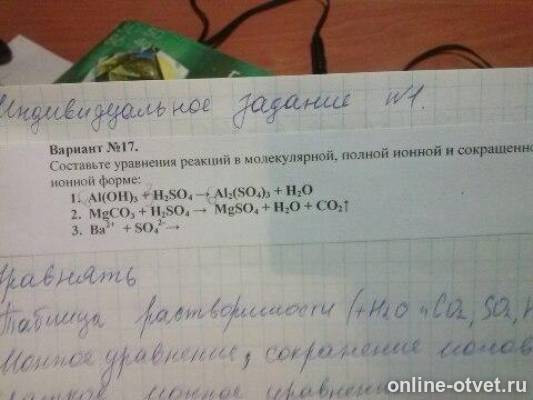 Индивидуальное задание №1.
Вариант №17.
Составьте уравнения реакций в молекулярной, полной ионной и сокращенно
ионной форме:
1. Al(OH)₃ + H₂SO₄ → Al₂(SO₄)₃ + H₂O
2. MgCO₃ + H₂SO₄ → MgSO₄ + H₂O + CO₂↑
3. Ba²⁺ + SO₄²⁻ →
Уравнять
Таблица растворимости (+H₂O и CO₂, SO₂, H
Ионное уравнение, сокращение
ионное уравнение
online-otvet.ru